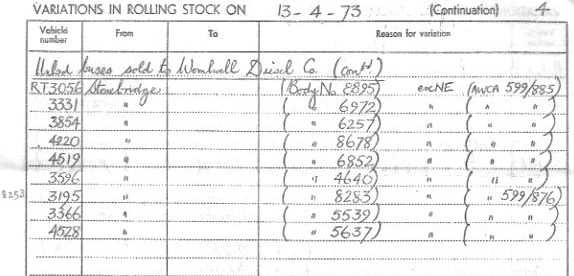 VARIATIONS IN ROLLING STOCK ON 13-4-73 (Continuation) 4
Vehicle number From To Reason for variation
Unlicd buses sold to Wombwell Diesel Co. (contd)
RT3056 Stonebridge (Body No 8895) exNE (AWCA 599/885)
3331 " ( " 6972) " ( " " )
3854 " ( " 6257) " ( " " )
4220 " ( " 8678) " ( " " )
4519 " ( " 6852) " ( " " )
3596 " ( " 4640) " ( " " )
8253 3195 " ( " 8283) " ( " 599/876)
3366 " ( " 5539) " ( " " )
4528 " ( " 5637) " ( " " )